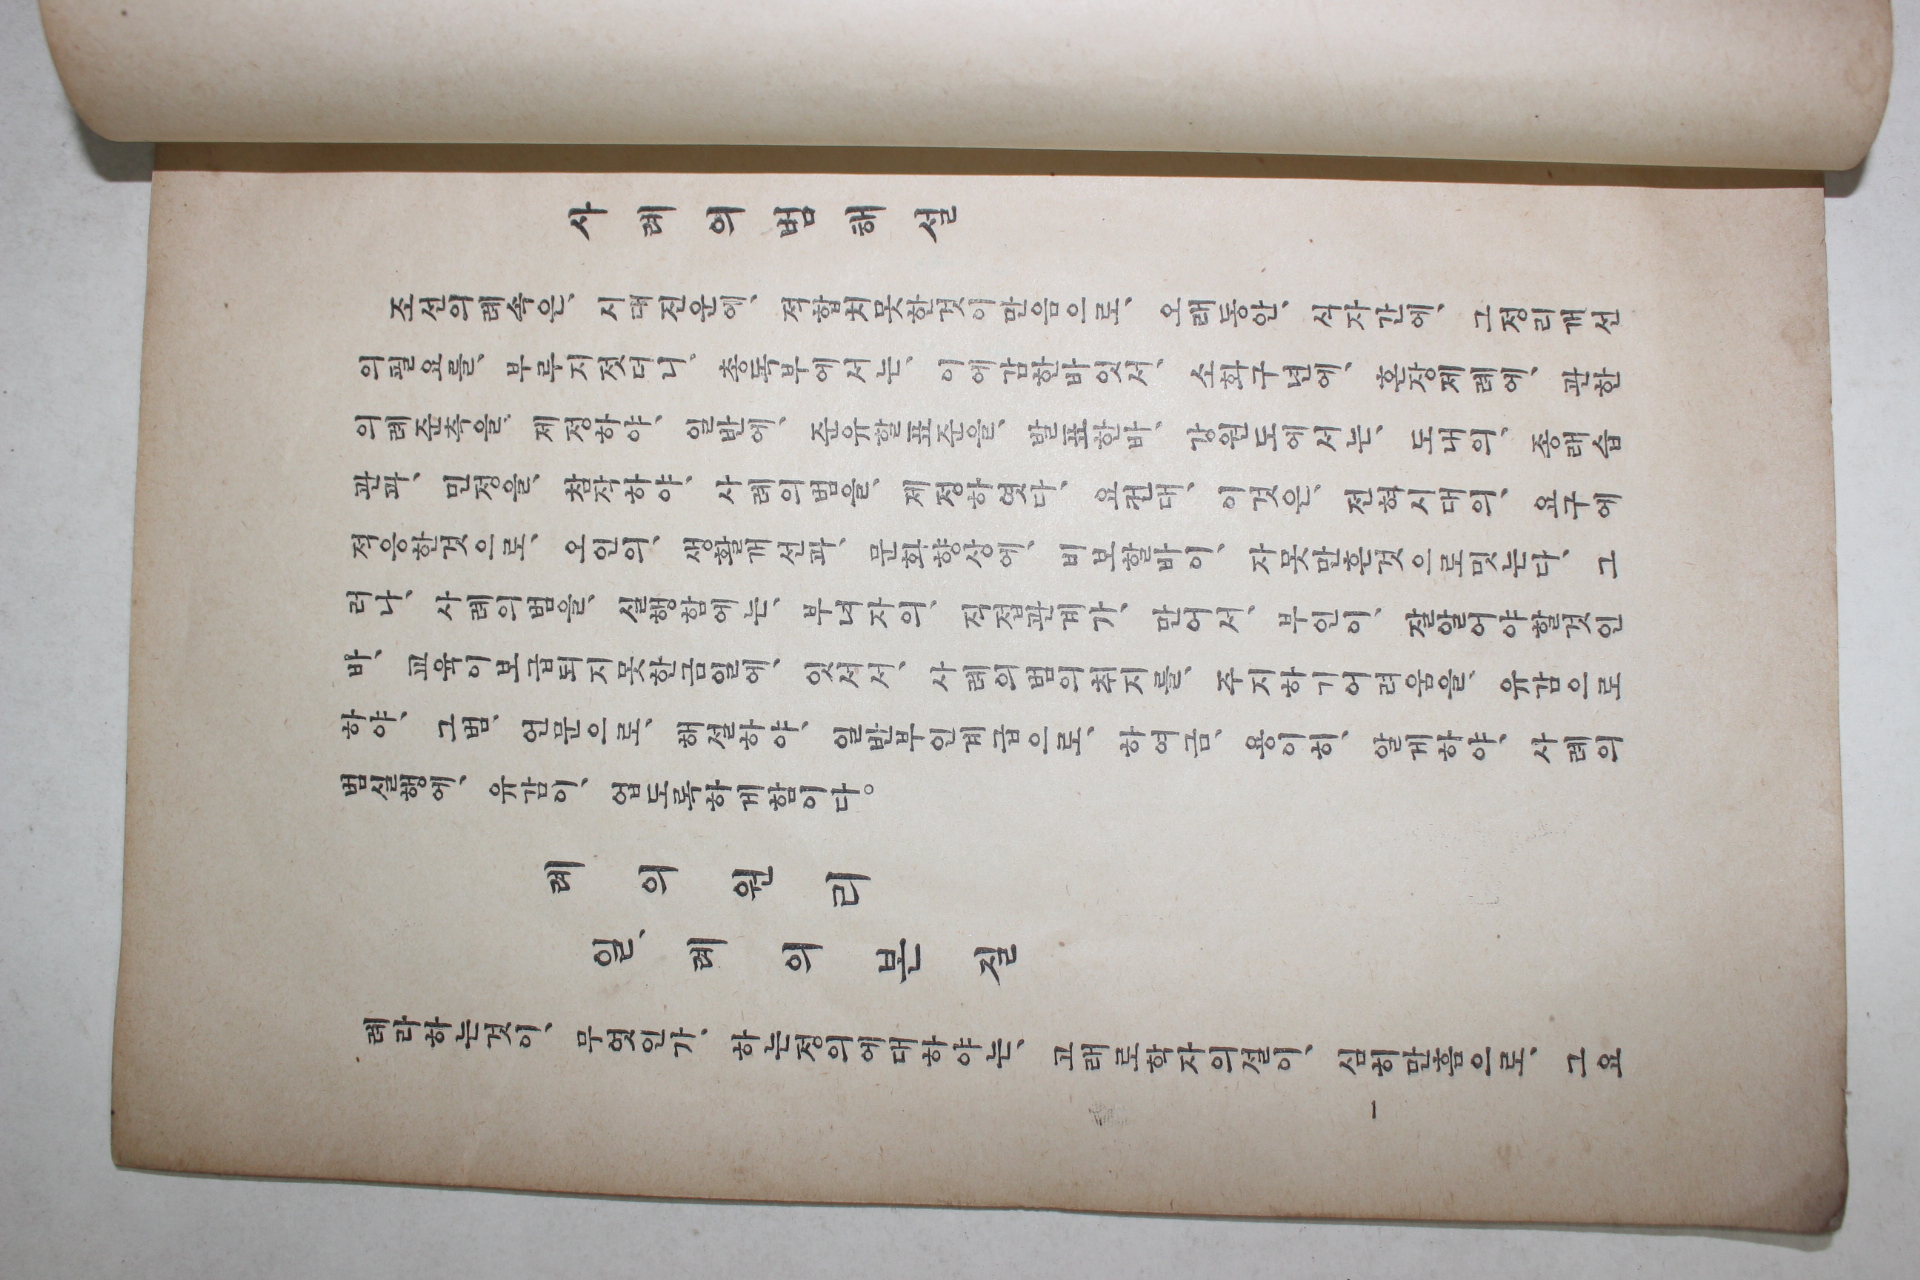 사례의범해설
조선의례속은、시대진운에、적합치못한것이만음으로、오래동안、식자간에、그정리개선
의필요를、부루지젓더니、총독부에서는、이에감한바잇서、소화구년에、혼장제례에、관한
의례준측을、제정하야、일반에、준유할표준을、발표한바、강원도에서는、도내의、종래습
관과、민정을、참작하야、사례의범을、제정하엿다、요컨대、이것은、전혀시대의、요구에
적응한것으로、오인의、생활개선과、문화향상에、비보할바이、자못만흔것으로밋는다、그
러나、사례의범을、실행함에는、부녀자의、직접관계가、만어서、부인이、잘알어야할것인
바、교육이보급되지못한금일에、잇서서、사례의범의취지를、주지하기어려움을、유감으로
하야、그범、언문으로、해설하야、일반부인계급으로、하여금、용이히、알게하야、사례의
범실행에、유감이、업도록하게함이다。
례의원리
일、례의본질
례라하는것이、무엇인가、하는정의에대하야는、고래로학자의설이、심히만흠으로、그요
一